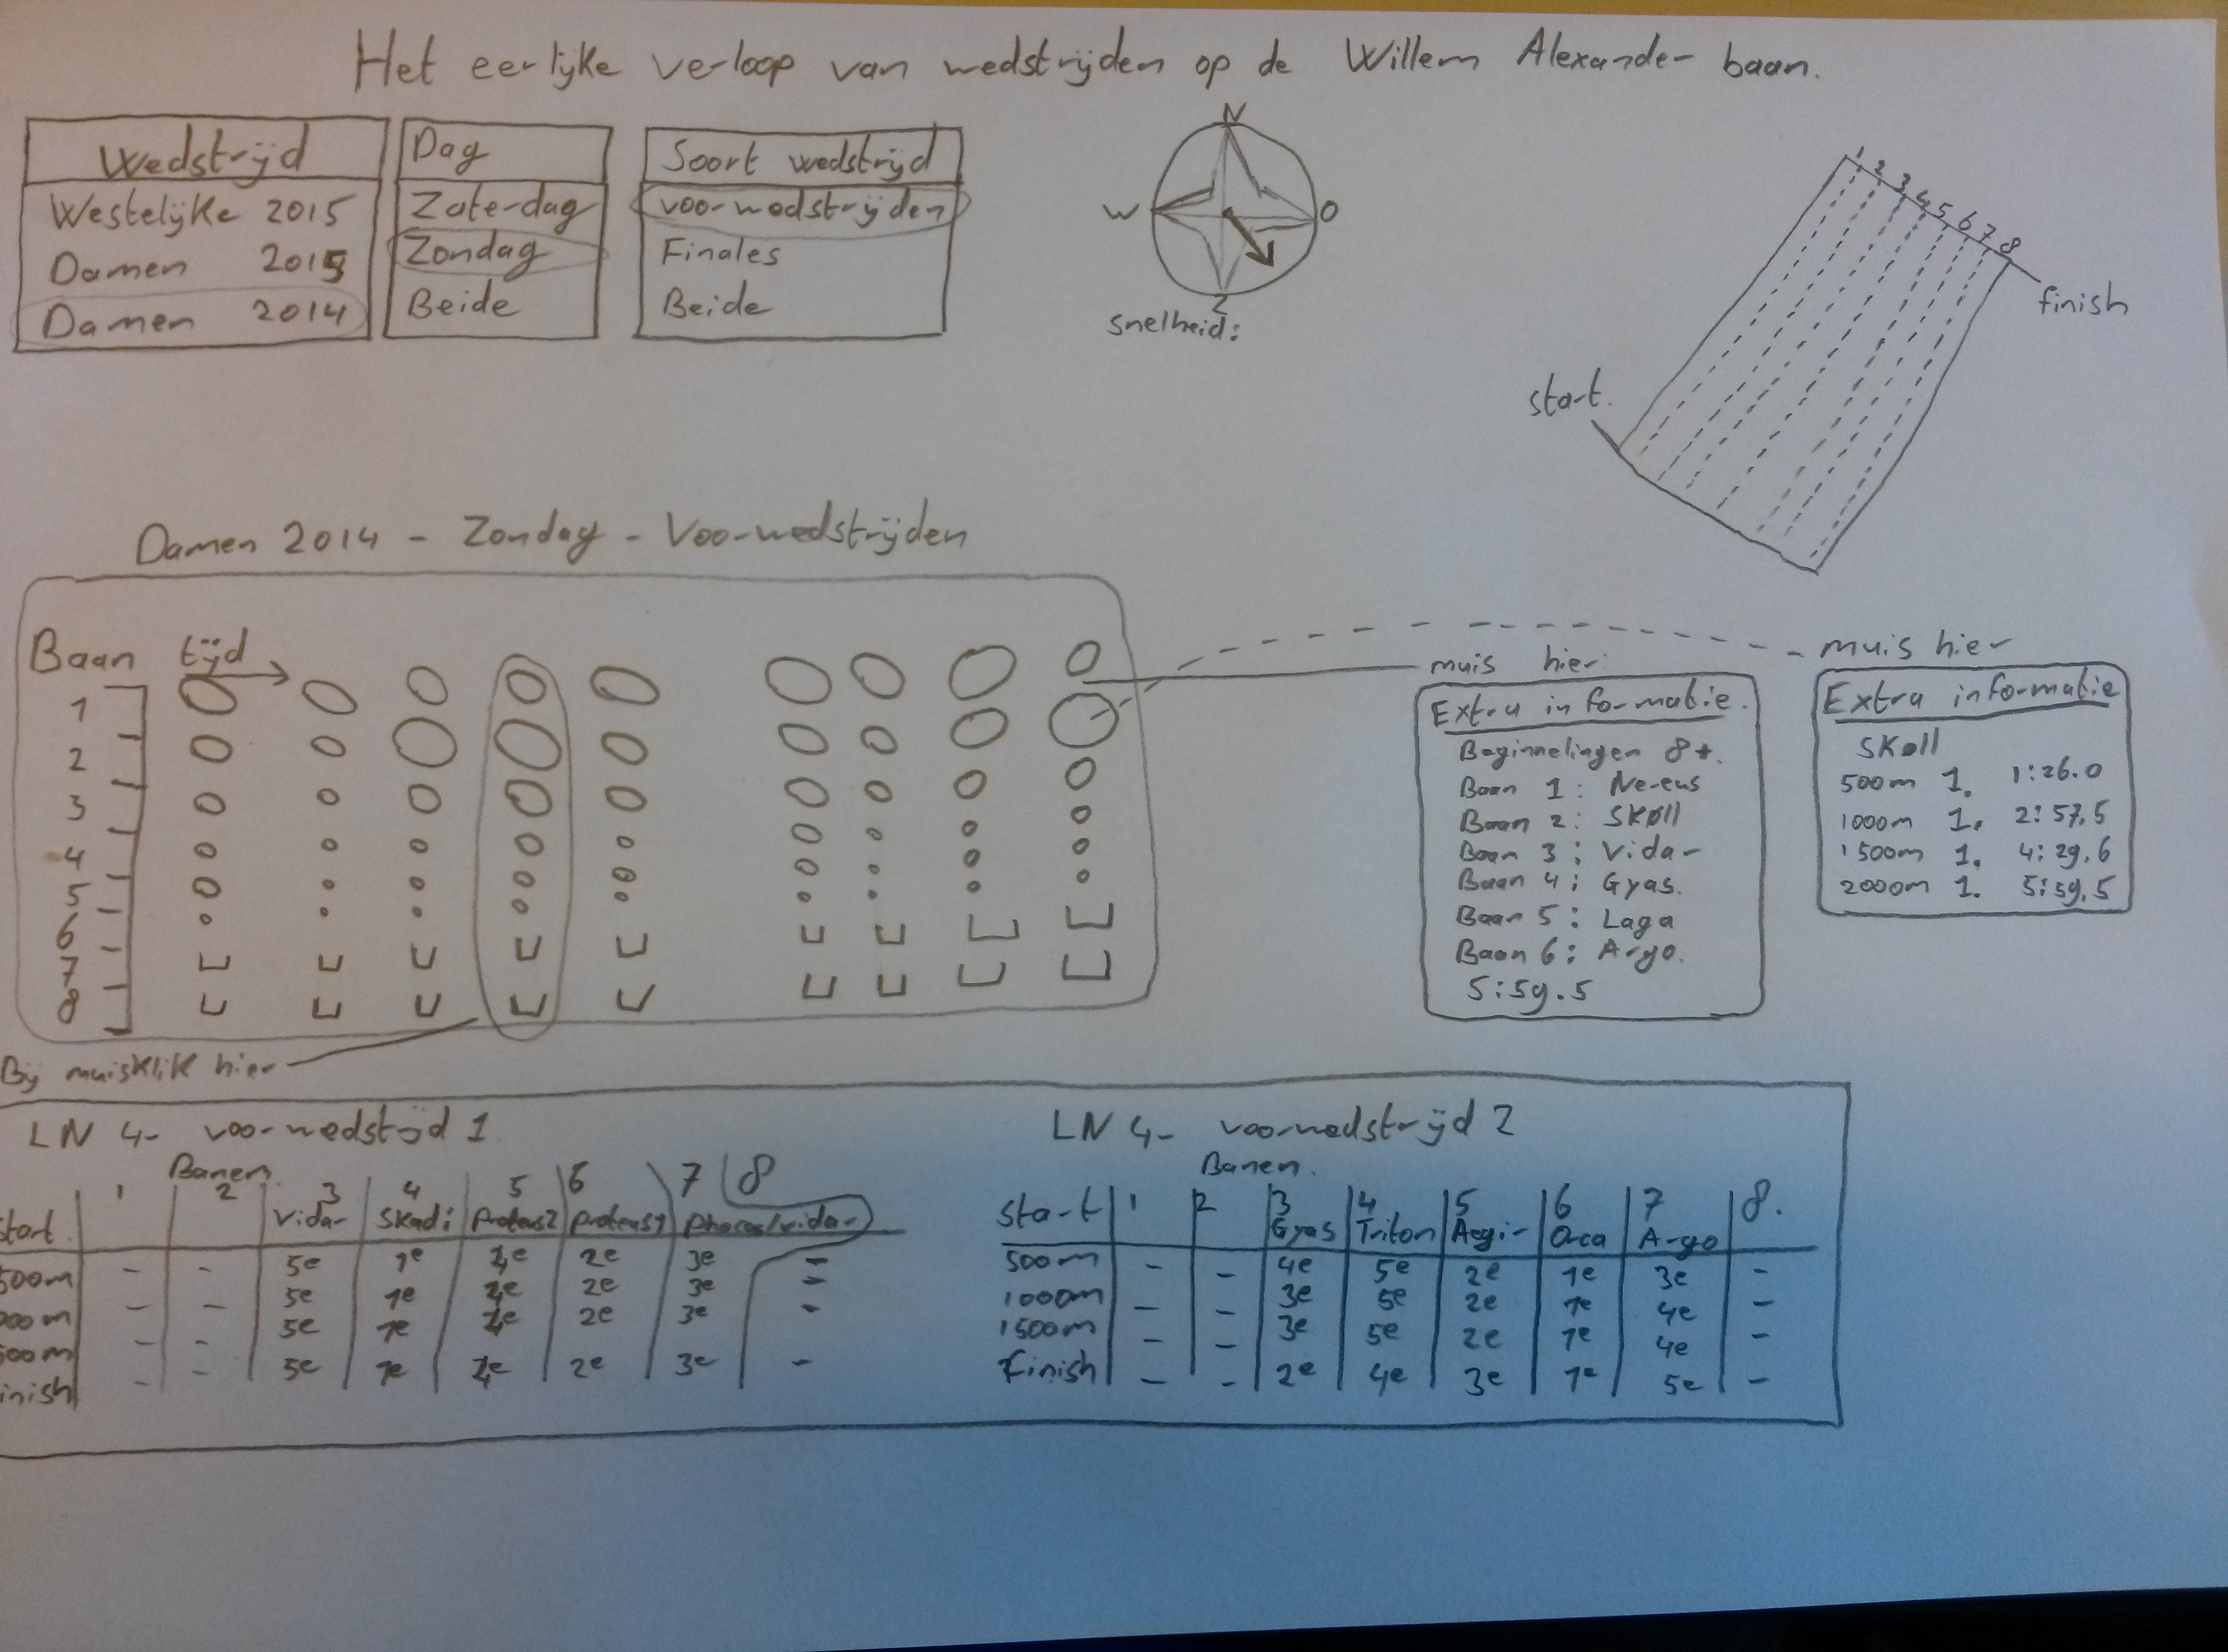 Het eerlijke verloop van wedstrijden op de Willem Alexander baan.
Wedstrijd
Westelijke 2015
Damen 2015
Damen 2014
Dag
Zaterdag
Zondag
Beide
Soort wedstrijd
voorwedstrijden
Finales
Beide
N
W
O
Z
snelheid:
1 2 3 4 5 6 7 8
finish
start.
Damen 2014 - Zondag - Voorwedstrijden
Baan
tijd
1
2
3
4
5
6
7
8
muis hier:
Extra informatie.
Beginnelingen 8+.
Baan 1: Nereus
Baan 2: Skøll
Baan 3: Vidar
Baan 4: Gyas.
Baan 5: Laga
Baan 6: Argo.
5:59.5
muis hier
Extra informatie
Skøll
500m 1. 1:26.0
1000m 1. 2:57,5
1500m 1. 4:29,6
2000m 1. 5:59,5
Bij muisklik hier
LN 4- voorwedstijd 1
Banen.
1 2 3 4 5 6 7 8
start. Vidar Skadi Proteus2 Proteus1 Phocas/vidar
500m - - 5e 1e 4e 2e 3e -
000m - - 5e 1e 4e 2e 3e -
500m - - 5e 1e 4e 2e 3e -
inish - - 5e 1e 4e 2e 3e -
LN 4- voorwedstrijd 2
Banen.
start 1 2 3 4 5 6 7 8.
Gyas Triton Aegir Orca Argo
500m - - 4e 5e 2e 1e 3e -
1000m - - 3e 5e 2e 1e 4e -
1500m - - 3e 5e 2e 1e 4e -
Finish - - 2e 4e 3e 1e 5e -